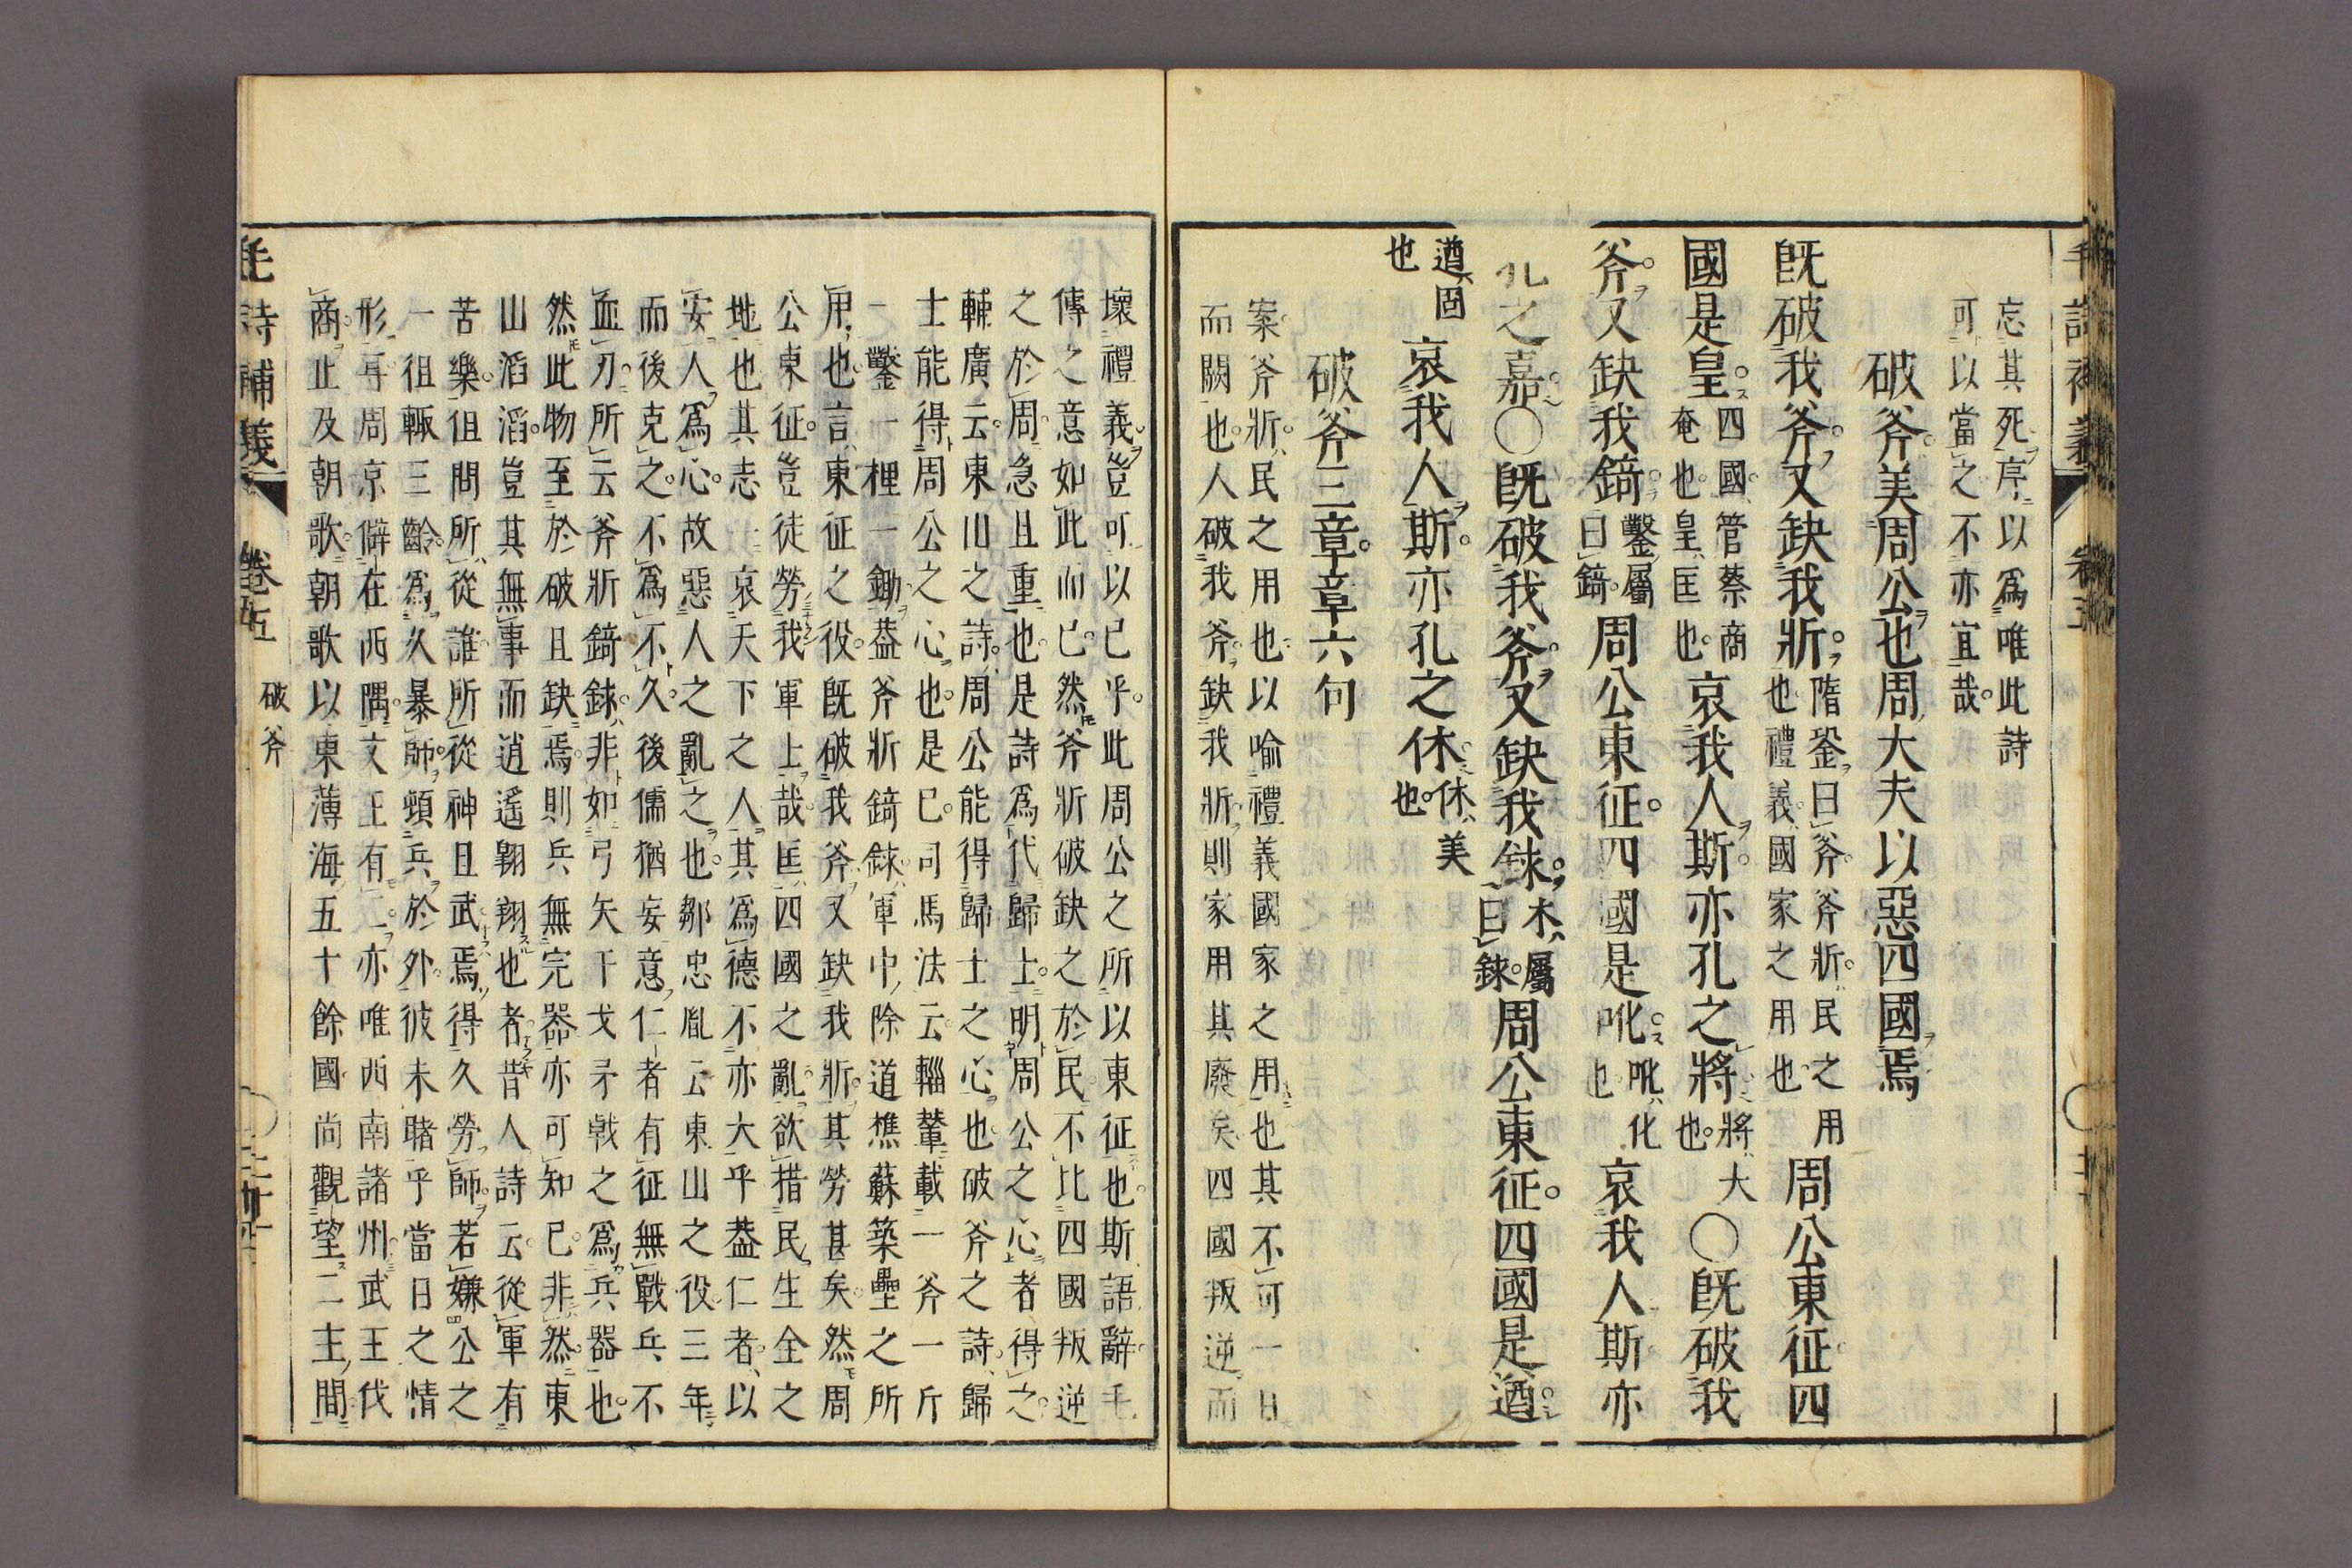 忘其死序以爲唯此詩
可以當之不亦宜哉
破斧美周公也周大夫以惡四國焉
旣破我斧又缺我斨隋銎曰斧斧斨民之用也禮義國家之用也周公東征四
國是皇四國管蔡商奄也皇匡也哀我人斯亦孔之將將大也○旣破我
斧又缺我錡鑿屬曰錡周公東征四國是吪吪化也哀我人斯亦
孔之嘉○旣破我斧又缺我銶木屬曰銶周公東征四國是遒
遒固也哀我人斯亦孔之休休美也
破斧三章章六句
案斧斨民之用也以喻禮義國家之用也其不可一日
而闕也人破我斧缺我斨則家用其廢矣四國叛逆而
壞禮義豈可以已乎此周公之所以東征也斯語辭毛
傳之意如此而已然斧斨破缺之於民不比四國叛逆
之於周急且重也是詩爲代歸士明周公之心者得之
輔廣云東山之詩周公能得歸士之心也破斧之詩歸
士能得周公之心也是已司馬法云輜輦載一斧一斤
一鑿一梩一鋤葢斧斨錡銶軍中除道樵蘇築壘之所
用也言東征之役旣破我斧又缺我斨其勞甚矣然周
公東征豈徒勞我軍上哉匡四國之亂欲措民生全之
地也其志哀天下之人其爲德不亦大乎葢仁者以
安人爲心故惡人之亂之也鄒忠胤云東山之役三年
而後克之不爲不久後儒猶妄意仁者有征無戰兵不
血刃所云斧斨錡銶非如弓矢干戈矛戟之爲兵器也
然此物至於破且缺焉則兵無完器亦可知已非然東
山滔滔豈其無事而逍遙翺翔也者昔人詩云從軍有
苦樂但問所從誰所從神且武焉得久勞師若嫌公之
一徂輒三齡爲久暴師頓兵於外彼未睹乎當日之情
形耳周京僻在西隅文王有二亦唯西南諸州武王伐
商止及朝歌朝歌以東薄海五十餘國尚觀望二主間
毛詩補義 卷五 破斧